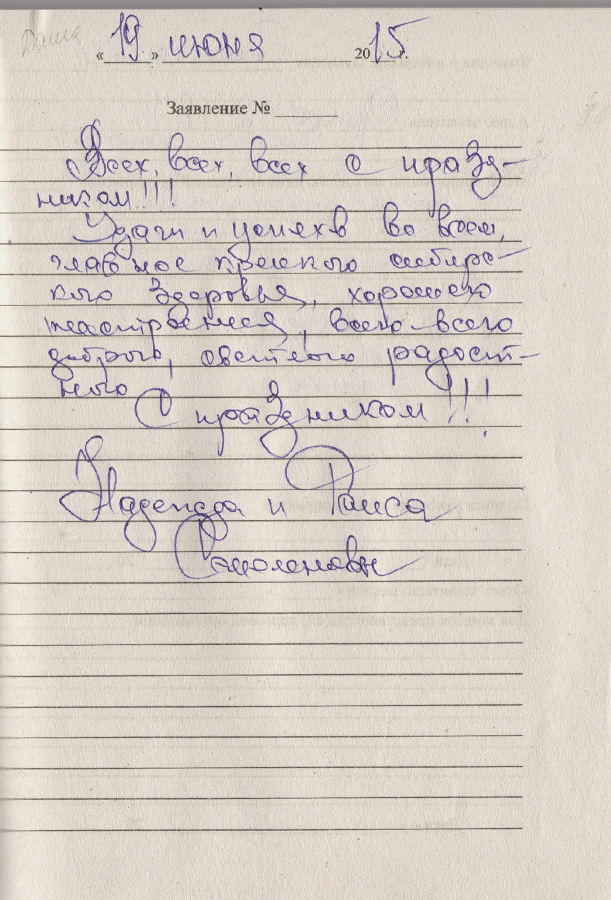 Даша
«19» июня 2015 г.
Заявление №
Всех, всех, всех с празд-
ником!!!
Удачи и успехов во всем,
главное крепкого сибирс-
кого здоровья, хорошего
настроения, всего-всего
доброго, светлого радост-
ного
С праздником!!!
Надежда и Раиса